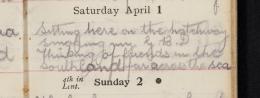 Saturday April 1
Sitting here on the hatchway
smoking my S.B.D.
Thinking of friends in the
Southland far across the sea
4th in Lent. Sunday 2